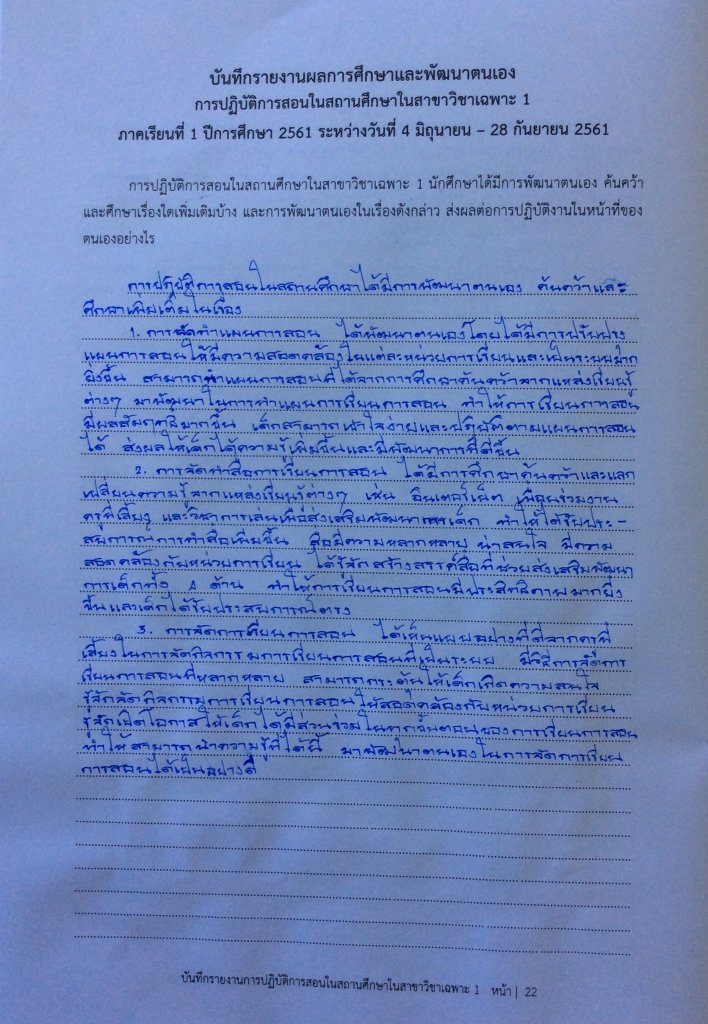 บันทึกรายงานผลการศึกษาและพัฒนาตนเอง
การปฏิบัติการสอนในสถานศึกษาในสาขาวิชาเฉพาะ 1
ภาคเรียนที่ 1 ปีการศึกษา 2561 ระหว่างวันที่ 4 มิถุนายน – 28 กันยายน 2561
การปฏิบัติการสอนในสถานศึกษาในสาขาวิชาเฉพาะ 1 นักศึกษาได้มีการพัฒนาตนเอง ค้นคว้า
และศึกษาเรื่องใดเพิ่มเติมบ้าง และการพัฒนาตนเองในเรื่องดังกล่าว ส่งผลต่อการปฏิบัติงานในหน้าที่ของ
ตนเองอย่างไร
การปฏิบัติการสอนในสถานศึกษาได้มีการพัฒนาตนเอง ค้นคว้าและ
ศึกษาเพิ่มเติมในเรื่อง
1. การจัดทำแผนการสอน ได้พัฒนาตนเองโดยได้มีการปรับปรุง
แผนการสอนให้มีความสอดคล้องในแต่ละหน่วยการเรียนและเป็นระบบมาก
ยิ่งขึ้น สามารถนำแผนการสอนที่ได้จากการศึกษาค้นคว้าจากแหล่งเรียนรู้
ต่างๆ มาพัฒนาในการทำแผนการเรียนการสอน ทำให้การเรียนการสอน
มีผลสัมฤทธิ์มากขึ้น เด็กสามารถเข้าใจง่ายและปฏิบัติตามแผนการสอน
ได้ ส่งผลให้เด็กได้ความรู้เพิ่มขึ้นและมีพัฒนาการที่ดีขึ้น
2. การจัดทำสื่อการเรียนการสอน ได้มีการศึกษาค้นคว้าและแลก
เปลี่ยนความรู้จากแหล่งเรียนรู้ต่างๆ เช่น อินเตอร์เน็ต เพื่อนร่วมงาน
ครูพี่เลี้ยง และวิชาการเล่นเพื่อส่งเสริมพัฒนาการเด็ก ทำให้ได้รับประ-
สบการณ์การทำสื่อเพิ่มขึ้น สื่อมีความหลากหลาย น่าสนใจ มีความ
สอดคล้องกับหน่วยการเรียน ได้รู้จักสร้างสรรค์สื่อที่ช่วยส่งเสริมพัฒนา
การเด็กทั้ง 4 ด้าน ทำให้การเรียนการสอนมีประสิทธิภาพมากยิ่ง
ขึ้นและเด็กได้รับประสบการณ์ตรง
3. การจัดการเรียนการสอน ได้เห็นแบบอย่างที่ดีจากครูพี่
เลี้ยงในการจัดกิจกรรมการเรียนการสอนที่เป็นระบบ มีวิธีการจัดการ
เรียนการสอนที่หลากหลาย สามารถกระตุ้นให้เด็กเกิดความสนใจ
รู้จักจัดกิจกรรมการเรียนการสอนให้สอดคล้องกับหน่วยการเรียน
รู้จักเปิดโอกาสให้เด็กได้มีส่วนร่วมในทุกขั้นตอนของการเรียนการสอน
ทำให้สามารถนำความรู้ที่ได้นี้ มาพัฒนาตนเองในการจัดการเรียน
การสอนได้เป็นอย่างดี
บันทึกรายงานการปฏิบัติการสอนในสถานศึกษาในสาขาวิชาเฉพาะ 1 หน้า | 22